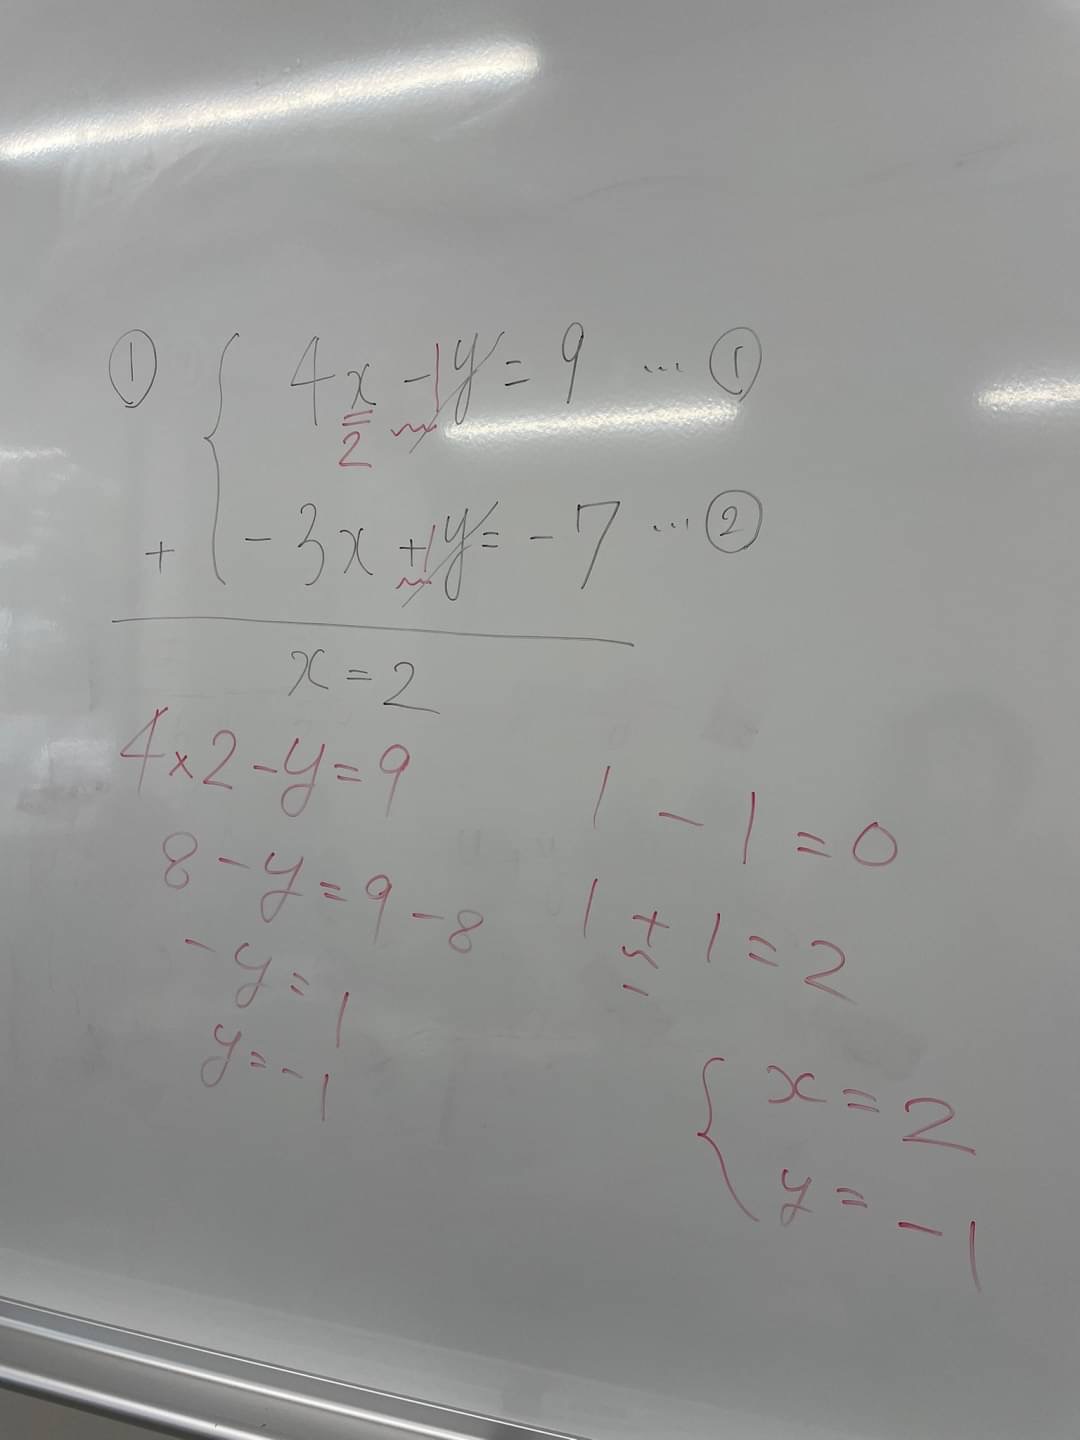 ① { 4x - 1y = 9 … ①
2
+ { - 3x + 1y = - 7 … ②
x = 2
4 × 2 - y = 9
8 - y = 9 - 8
- y = 1
y = - 1
1 - 1 = 0
1 + 1 = 2
{ x = 2
y = - 1